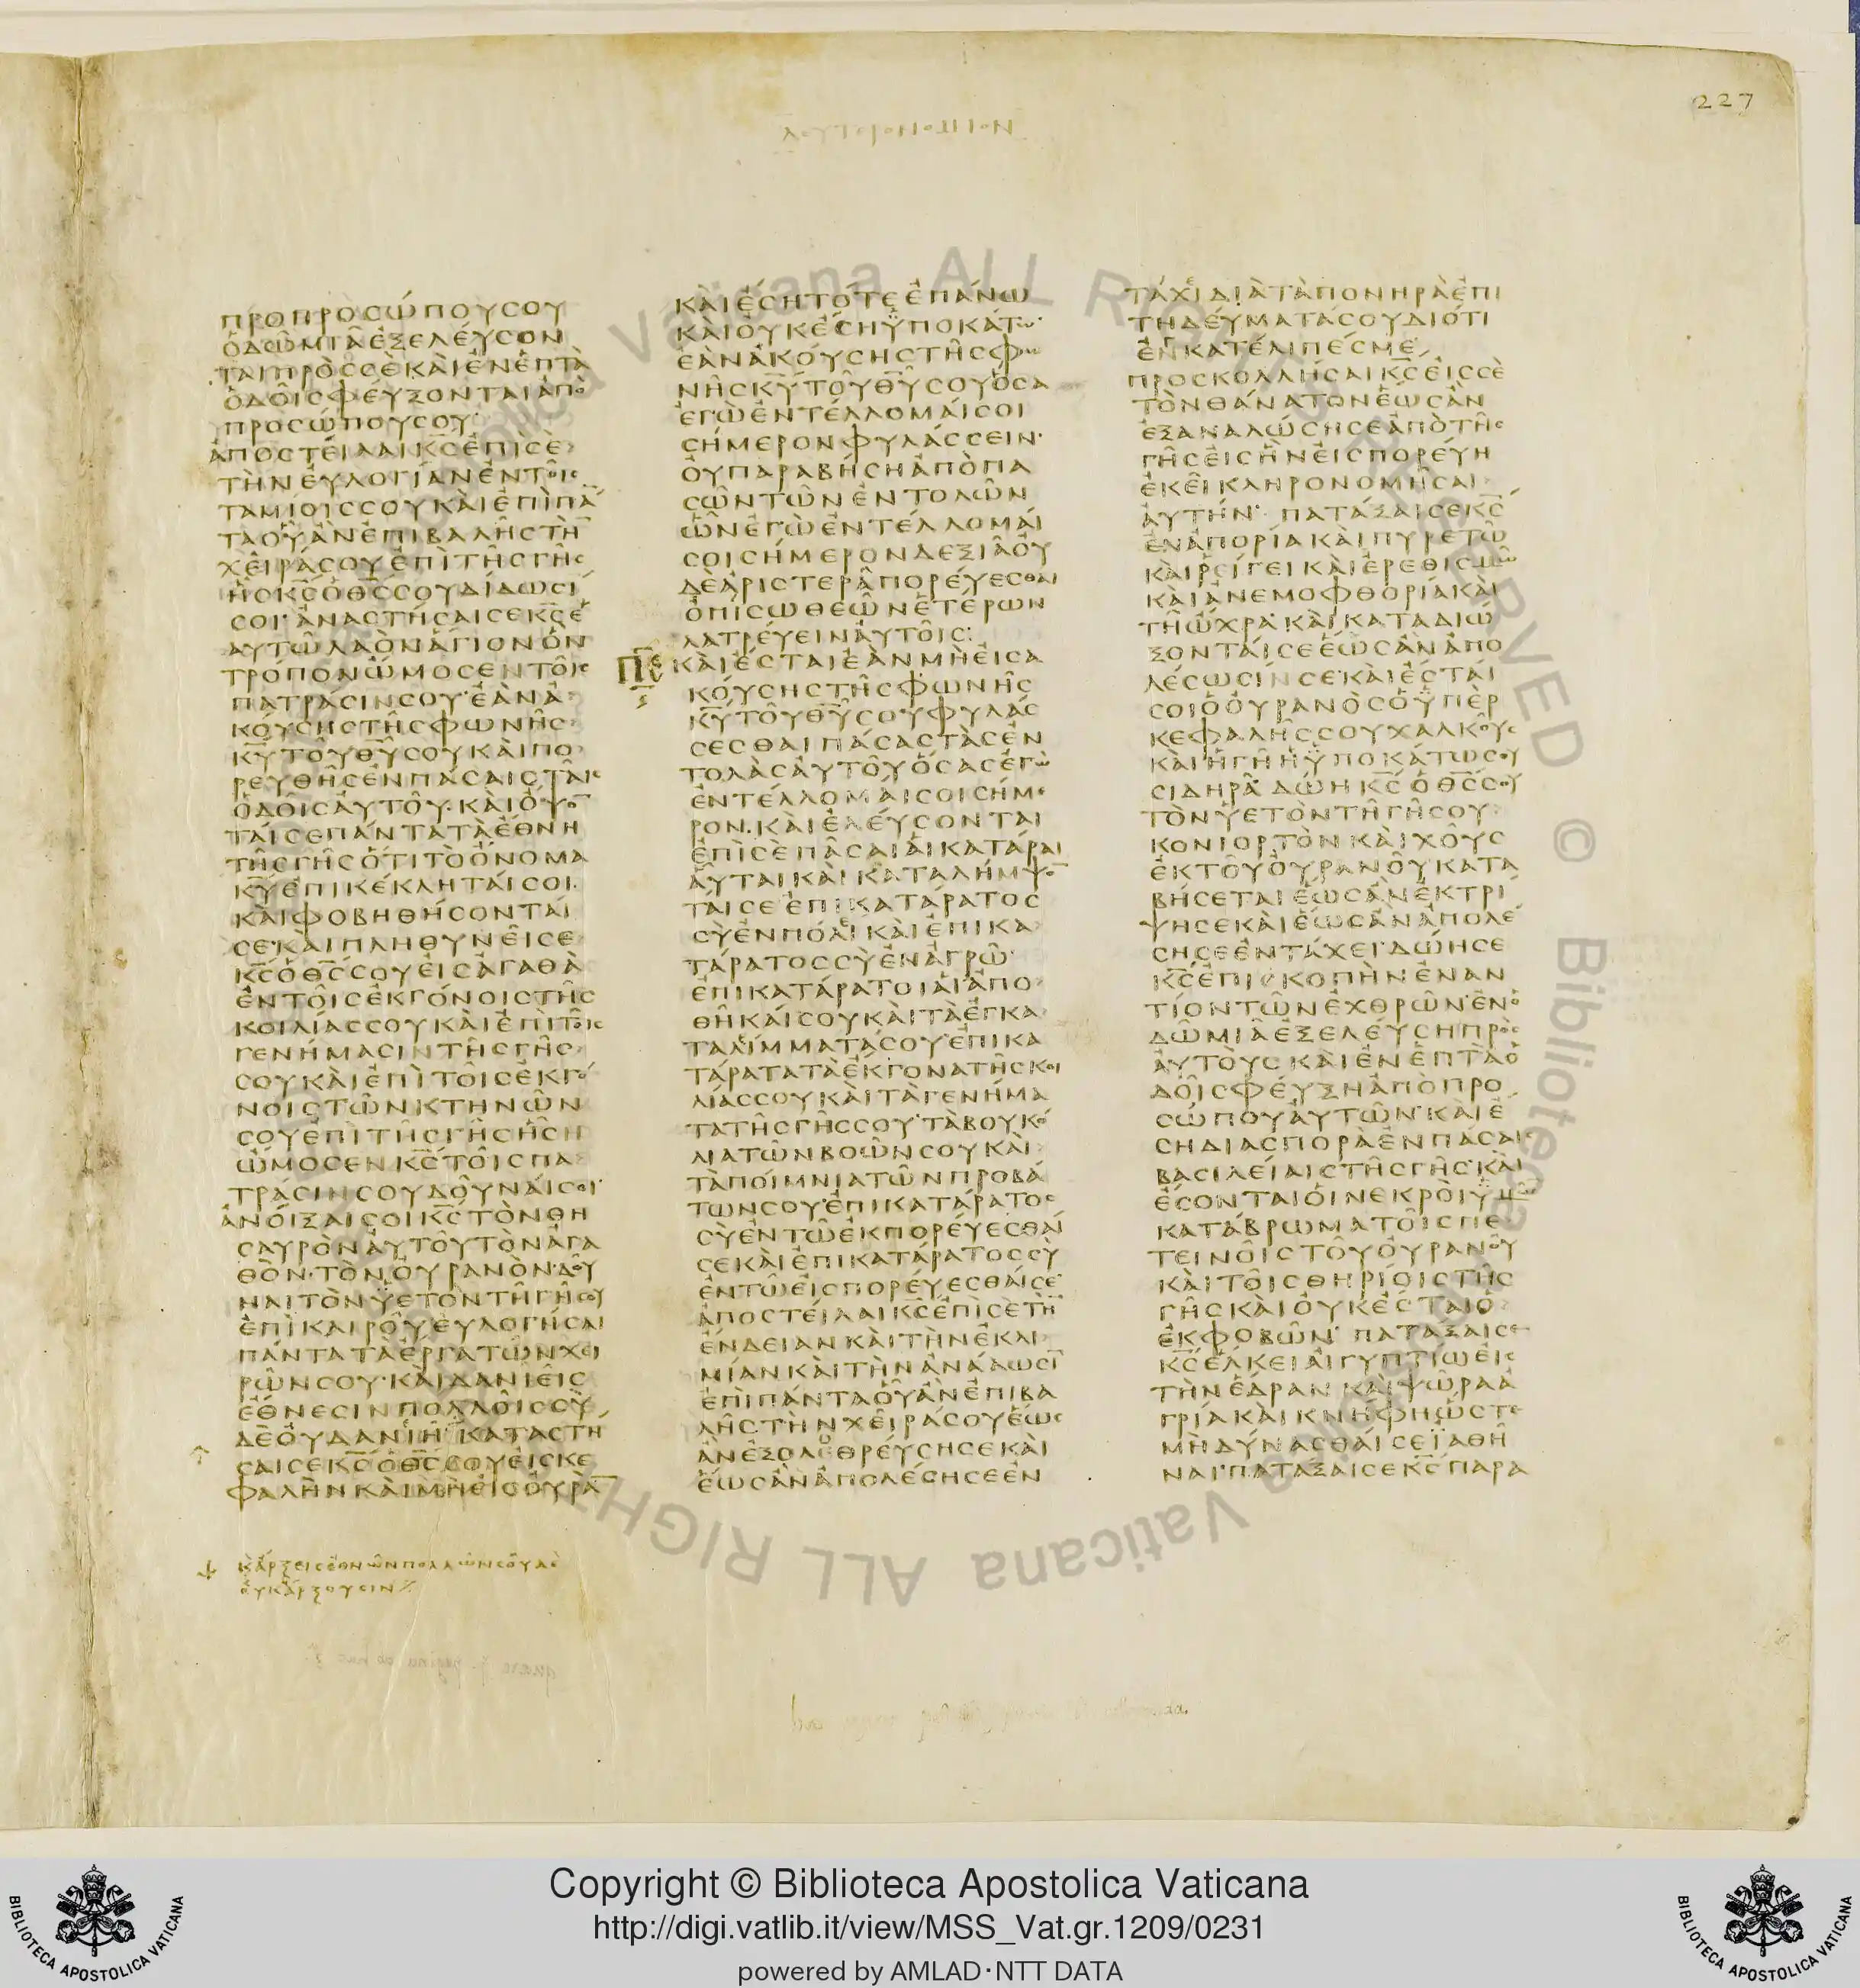 227
ΠΡΟΠΡΟΣΩΠΟΥΣΟΥ
ΟΔΩΜΙΑΕΞΕΛΕΥΣΟΝ
ΤΑΙΠΡΟΣΣΕΚΑΙΕΝΕΠΤΑ
ΟΔΟΙΣΦΕΥΞΟΝΤΑΙΑΠΟ
ΠΡΟΣΩΠΟΥΣΟΥ
ΑΠΟΣΤΕΙΛΑΙΚ̅Σ̅ΕΠΙΣΕ
ΤΗΝΕΥΛΟΓΙΑΝΕΝΤΟΙΣ
ΤΑΜΙΟΙΣΣΟΥΚΑΙΕΠΙΠΑ̅
ΤΑΟΥΑΝΕΠΙΒΑΛΗΣΤΗ̅
ΧΕΙΡΑΣΟΥΕΠΙΤΗΣΓΗΣ
ΗΣΚ̅Σ̅ΟΘ̅Σ̅ΣΟΥΔΙΔΩΣΙ
ΣΟΙ·ΑΝΑΣΤΗΣΑΙΣΕΚ̅Σ̅Ε
ΑΥΤΩΛΑΟΝΑΓΙΟΝΟΝ
ΤΡΟΠΟΝΩΜΟΣΕΝΤΟΙΣ
ΠΑΤΡΑΣΙΝΣΟΥ·ΕΑΝΑ
ΚΟΥΣΗΣΤΗΣΦΩΝΗΣ
Κ̅Υ̅ΤΟΥΘ̅Υ̅ΣΟΥΚΑΙΠΟ
ΡΕΥΘΗΣΕΝΠΑΣΑΙΣΤΑΙΣ
ΟΔΟΙΣΑΥΤΟΥ·ΚΑΙΟΨΟ̅
ΤΑΙΣΕΠΑΝΤΑΤΑΕΘΝΗ
ΤΗΣΓΗΣΟΤΙΤΟΟΝΟΜΑ
Κ̅Υ̅ΕΠΙΚΕΚΛΗΤΑΙΣΟΙ·
ΚΑΙΦΟΒΗΘΗΣΟΝΤΑΙ
ΣΕ·ΚΑΙΠΛΗΘΥΝΕΙΣΕ
Κ̅Σ̅ΟΘ̅Σ̅ΣΟΥΕΙΣΑΓΑΘΑ
ΕΝΤΟΙΣΕΚΓΟΝΟΙΣΤΗΣ
ΚΟΙΛΙΑΣΣΟΥΚΑΙΕΠΙΤΟΙΣ
ΓΕΝΗΜΑΣΙΝΤΗΣΓΗΣ
ΣΟΥΚΑΙΕΠΙΤΟΙΣΕΚΓΟ
ΝΟΙΣΤΩΝΚΤΗΝΩΝ
ΣΟΥΕΠΙΤΗΣΓΗΣΗΣΗ
ΩΜΟΣΕΝΚ̅Σ̅ΤΟΙΣΠΑ
ΤΡΑΣΙΝΣΟΥΔΟΥΝΑΙΣΟΙ·
ΑΝΟΙΞΑΙΣΟΙΚ̅Σ̅ΤΟΝΘΗ
ΣΑΥΡΟΝΑΥΤΟΥΤΟΝΑΓΑ
ΘΟΝ·ΤΟΝΟΥΡΑΝΟΝΔΟΥ
ΝΑΙΤΟΝΫΕΤΟΝΤΗΓΗΣΟΥ
ΕΠΙΚΑΙΡΟΥΕΥΛΟΓΗΣΑΙ
ΠΑΝΤΑΤΑΕΡΓΑΤΩΝΧΕΙ
ΡΩΝΣΟΥ·ΚΑΙΔΑΝΙΕΙΣ
ΕΘΝΕΣΙΝΠΟΛΛΟΙΣΣΥ
ΔΕΟΥΔΑΝΙΗ·ΚΑΤΑΣΤΗ
ΣΑΙΣΕΚ̅Σ̅ΟΘ̅Σ̅ΣΟΥΕΙΣΚΕ
ΦΑΛΗΝΚΑΙΜΗΕΙΣΟΥΡΑ̅
ΚΑΡΞΕΙΣΕΘΝΩΝΠΟΛΛΩΝΣΟΥΔΕ
ΟΥΚΑΡΞΟΥΣΙΝ
ΚΑΙΕΣΗΤΟΤΕΕΠΑΝΩ
ΚΑΙΟΥΚΕΣΗΫΠΟΚΑΤΩ·
ΕΑΝΑΚΟΥΣΗΣΤΗΣΦΩ
ΝΗΣΚ̅Υ̅ΤΟΥΘ̅Υ̅ΣΟΥΟΣΑ
ΕΓΩΕΝΤΕΛΛΟΜΑΙΣΟΙ
ΣΗΜΕΡΟΝΦΥΛΑΣΣΕΙΝ·
ΟΥΠΑΡΑΒΗΣΗΑΠΟΠΑ
ΣΩΝΤΩΝΕΝΤΟΛΩΝ
ΩΝΕΓΩΕΝΤΕΛΛΟΜΑΙ
ΣΟΙΣΗΜΕΡΟΝΔΕΞΙΑΟΥ
ΔΕΑΡΙΣΤΕΡΑΠΟΡΕΥΕΣΘΑΙ
ΟΠΙΣΩΘΕΩΝΕΤΕΡΩΝ
ΛΑΤΡΕΥΕΙΝΑΥΤΟΙΣ:
ΚΑΙΕΣΤΑΙΕΑΝΜΗΕΙΣΑ
ΚΟΥΣΗΣΤΗΣΦΩΝΗΣ
Κ̅Υ̅ΤΟΥΘ̅Υ̅ΣΟΥΦΥΛΑΣ
ΣΕΣΘΑΙΠΑΣΑΣΤΑΣΕΝ
ΤΟΛΑΣΑΥΤΟΥΟΣΑΣΕΓΩ
ΕΝΤΕΛΛΟΜΑΙΣΟΙΣΗΜΕ
ΡΟΝ·ΚΑΙΕΛΕΥΣΟΝΤΑΙ
ΕΠΙΣΕΠΑΣΑΙΑΙΚΑΤΑΡΑΙ
ΑΥΤΑΙΚΑΙΚΑΤΑΛΗΜΨΟ̅
ΤΑΙΣΕΕΠΙΚΑΤΑΡΑΤΟΣ
ΣΥΕΝΠΟΛΕΙΚΑΙΕΠΙΚΑ
ΤΑΡΑΤΟΣΣΥΕΝΑΓΡΩ·
ΕΠΙΚΑΤΑΡΑΤΟΙΑΙΑΠΟ
ΘΗΚΑΙΣΟΥΚΑΙΤΑΕΓΚΑ
ΤΑΛΙΜΜΑΤΑΣΟΥ·ΕΠΙΚΑ
ΤΑΡΑΤΑΤΑΕΚΓΟΝΑΤΗΣΚΟΙ
ΛΙΑΣΣΟΥΚΑΙΤΑΓΕΝΗΜΑ
ΤΑΤΗΣΓΗΣΣΟΥ·ΤΑΒΟΥΚΟ
ΛΙΑΤΩΝΒΟΩΝΣΟΥΚΑΙ
ΤΑΠΟΙΜΝΙΑΤΩΝΠΡΟΒΑ
ΤΩΝΣΟΥ·ΕΠΙΚΑΤΑΡΑΤΟΣ
ΣΥΕΝΤΩΕΚΠΟΡΕΥΕΣΘΑΙ
ΣΕΚΑΙΕΠΙΚΑΤΑΡΑΤΟΣΣΥ
ΕΝΤΩΕΙΣΠΟΡΕΥΕΣΘΑΙΣΕ·
ΑΠΟΣΤΕΙΛΑΙΚ̅Σ̅ΕΠΙΣΕΤΗ̅
ΕΝΔΕΙΑΝΚΑΙΤΗΝΕΚΛΙ
ΜΙΑΝΚΑΙΤΗΝΑΝΑΛΩΣΙ̅
ΕΠΙΠΑΝΤΑΟΥΑΝΕΠΙΒΑ
ΛΗΣΤΗΝΧΕΙΡΑΣΟΥΕΩΣ
ΑΝΕΞΟΛΕΘΡΕΥΣΗΣΕΚΑΙ
ΕΩΣΑΝΑΠΟΛΕΣΗΣΕΕΝ
ΤΑΧΕΙΔΙΑΤΑΠΟΝΗΡΑΕΠΙ
ΤΗΔΕΥΜΑΤΑΣΟΥΔΙΟΤΙ
ΕΝΚΑΤΕΛΙΠΕΣΜΕ·
ΠΡΟΣΚΟΛΛΗΣΑΙΚ̅Σ̅ΕΙΣΣΕ
ΤΟΝΘΑΝΑΤΟΝΕΩΣΑΝ
ΕΞΑΝΑΛΩΣΗΣΕΑΠΟΤΗΣ
ΓΗΣΕΙΣΗΝΕΙΣΠΟΡΕΥΗ
ΕΚΕΙΚΛΗΡΟΝΟΜΗΣΑΙ
ΑΥΤΗΝ· ΠΑΤΑΞΑΙΣΕΚ̅Σ̅
ΕΝΑΠΟΡΙΑΚΑΙΠΥΡΕΤΩ
ΚΑΙΡΙΓΕΙΚΑΙΕΡΕΘΙΣΜΩ
ΚΑΙΑΝΕΜΟΦΘΟΡΙΑΚΑΙ
ΤΗΩΧΡΑ·ΚΑΙΚΑΤΑΔΙΩ
ΞΟΝΤΑΙΣΕΕΩΣΑΝΑΠΟ
ΛΕΣΩΣΙΝΣΕ·ΚΑΙΕΣΤΑΙ
ΣΟΙΟΟΥΡΑΝΟΣΟΫΠΕΡ
ΚΕΦΑΛΗΣΣΟΥΧΑΛΚΟΥΣ
ΚΑΙΗΓΗΗΫΠΟΚΑΤΩΣΟΥ
ΣΙΔΗΡΑ ΔΩΗΚ̅Σ̅ΟΘ̅Σ̅ΣΟΥ
ΤΟΝΫΕΤΟΝΤΗΓΗΣΟΥ
ΚΟΝΙΟΡΤΟΝΚΑΙΧΟΥΣ
ΕΚΤΟΥΟΥΡΑΝΟΥΚΑΤΑ
ΒΗΣΕΤΑΙΕΩΣΑΝΕΚΤΡΙ
ΨΗΣΕΚΑΙΕΩΣΑΝΑΠΟΛΕ
ΣΗΣΕΕΝΤΑΧΕΙ·ΔΩΗΣΕ
Κ̅Σ̅ΕΠΙΣΚΟΠΗΝΕΝΑΝ
ΤΙΟΝΤΩΝΕΧΘΡΩΝ·ΕΝΟ
ΔΩΜΙΑΕΞΕΛΕΥΣΗΠΡΟΣ
ΑΥΤΟΥΣΚΑΙΕΝΕΠΤΑΟ
ΔΟΙΣΦΕΥΞΗΑΠΟΠΡΟ
ΣΩΠΟΥΑΥΤΩΝ·ΚΑΙΕ
ΣΗΔΙΑΣΠΟΡΑΕΝΠΑΣΑΙΣ
ΒΑΣΙΛΕΙΑΙΣΤΗΣΓΗΣ·ΚΑΙ
ΕΣΟΝΤΑΙΟΙΝΕΚΡΟΙΫΜΩ̅
ΚΑΤΑΒΡΩΜΑΤΟΙΣΠΕ
ΤΕΙΝΟΙΣΤΟΥΟΥΡΑΝΟΥ
ΚΑΙΤΟΙΣΘΗΡΙΟΙΣΤΗΣ
ΓΗΣΚΑΙΟΥΚΕΣΤΑΙΟ
ΕΚΦΟΒΩΝ· ΠΑΤΑΞΑΙΣΕ
Κ̅Σ̅ΕΛΚΕΙΑΙΓΥΠΤΙΩΕΙΣ
ΤΗΝΕΔΡΑΝ ΚΑΙΨΩΡΑΑ
ΓΡΙΑΚΑΙΚΝΗΦΗΩΣΤΕ
ΜΗΔΥΝΑΣΘΑΙΣΕΪΑΘΗ
ΝΑΙ·ΠΑΤΑΞΑΙΣΕΚ̅Σ̅ΠΑΡΑ
Copyright © Biblioteca Apostolica Vaticana
http://digi.vatlib.it/view/MSS_Vat.gr.1209/0231
powered by AMLAD·NTT DATA
BIBLIOTECA APOSTOLICA VATICANA
BIBLIOTECA APOSTOLICA VATICANA